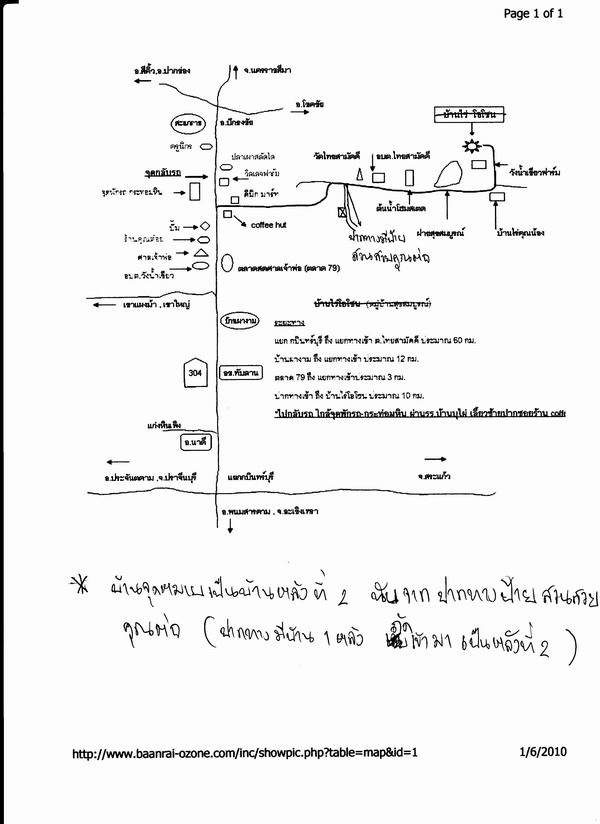 Page 1 of 1
อ.สีคิ้ว,อ.ปากช่อง
จ.นครราชสีมา
อ.โชคชัย
อ.ปักธงชัย
บ้านไร่ โอโซน
ครูนิกร
ปลาเผาสลัดได
วัดไทยสามัคคี
อบต.ไทยสามัคคี
จุดกลับรถ
วิลเลจฟาร์ม
วังน้ำเขียวฟาร์ม
จุดพักรถ กระทอมหิน
คิปิก มาร์ท
ต้นน้ำโฮมสเตด
ปั๊ม
coffee hut
ฝายสุขสมบูรณ์
บ้านไร่คุณน้อง
ปากทางมีป้าย
ร้านคุณต๋อย
สวนสวยคุณต่อ
ศาลเจ้าพ่อ
ตลาดสดศาลเจ้าพ่อ (ตลาด 79)
อบต.วังน้ำเขียว
เขาแผงม้า , เขาใหญ่
บ้านไร่โอโซน (หมู่บ้านสุขสมบูรณ์)
ระยะทาง
แยก กบินทร์บุรี ถึง แยกทางเข้า ต.ไทยสามัคคี ประมาณ 60 กม.
บ้านผางาม ถึง แยกทางเข้าประมาณ 12 กม.
304
อช.ทับลาน
ตลาด 79 ถึง แยกทางเข้าประมาณ 3 กม.
ปากทางเข้า ถึง บ้านไร่โอโซน ประมาณ 10 กม.
*ไปกลับรถ ใกล้จุดพักรถ-กระท่อมหิน ผ่านรร.บ้านบุไผ่ เลี้ยวซ้ายปากซอยร้าน coff
แก่งหินเพิง
อ.นาดี
อ.ประจันตคาม , จ.ปราจีนบุรี
แยกกบินทร์บุรี
จ.สระแก้ว
อ.พนมสารคาม , จ.ฉะเชิงเทรา
* บ้านจุดหมายเป็นบ้านหลังที่ 2 นับจาก ปากทางป้ายสวนสวย
คุณต่อ ( ปากทางมีบ้าน 1 หลัง ถัดเข้ามา เป็นหลังที่ 2 )
http://www.baanrai-ozone.com/inc/showpic.php?table=map&id=1
1/6/2010